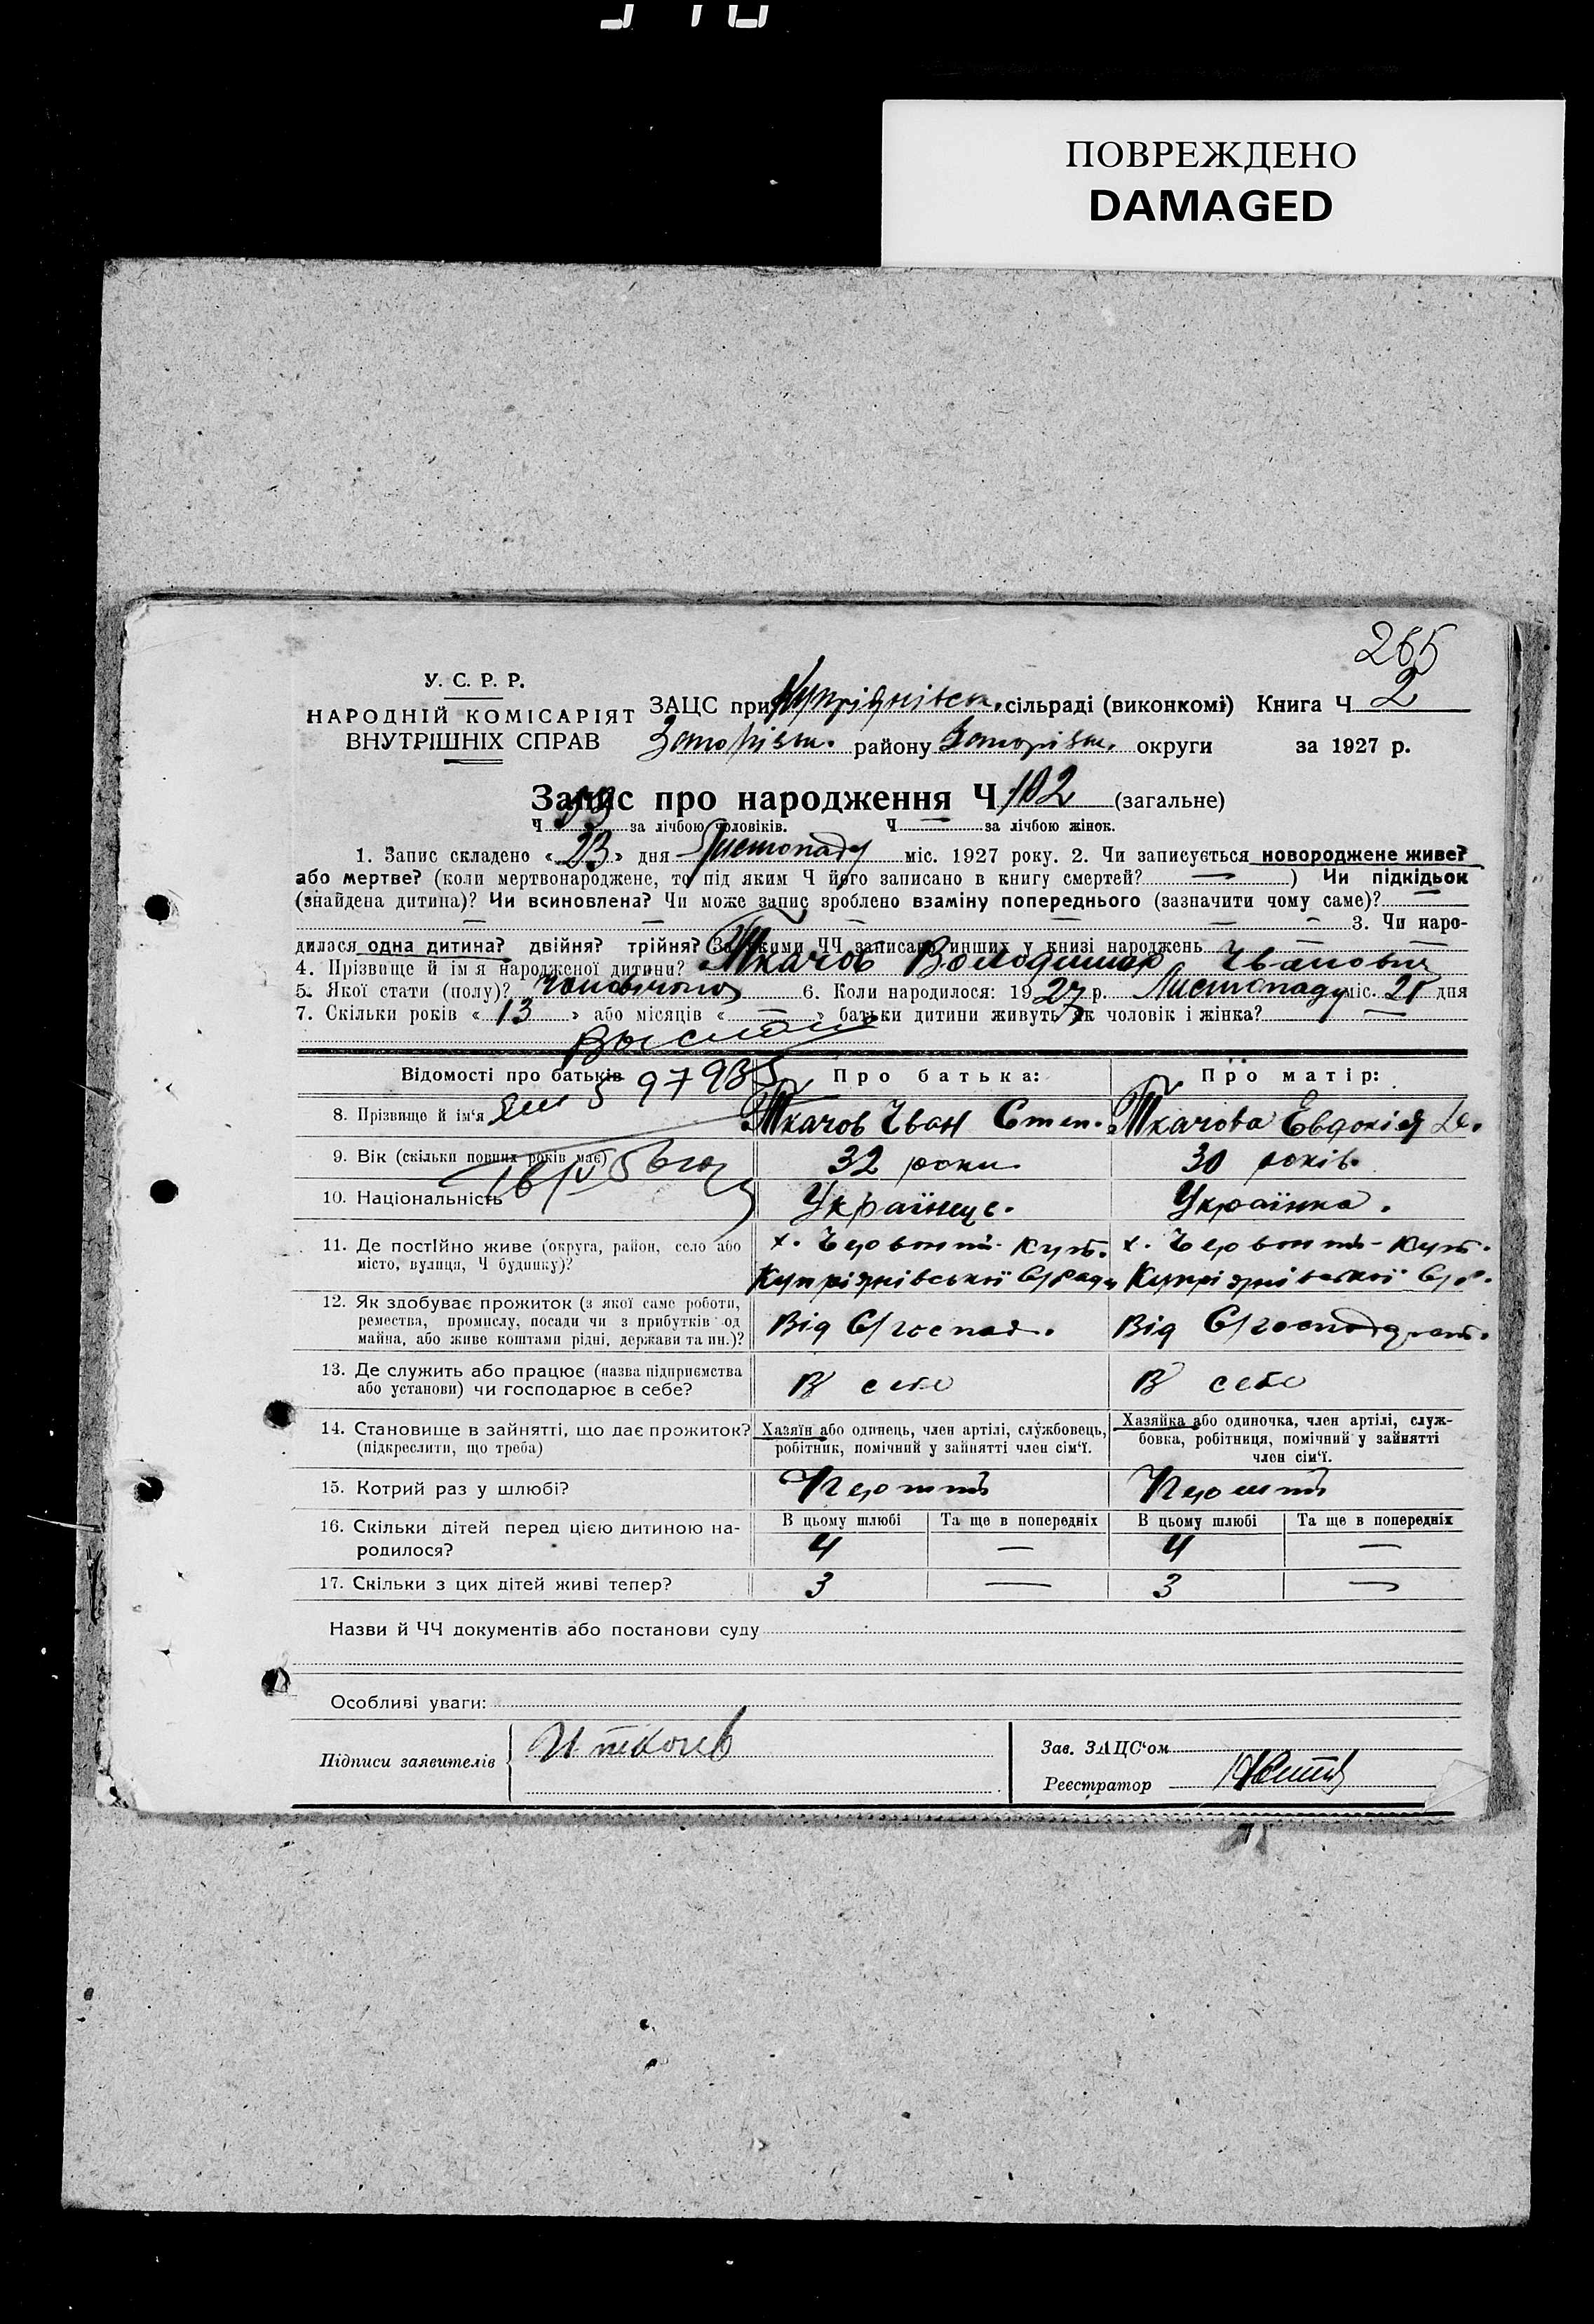 ПОВРЕЖДЕНО
DAMAGED
265
У. С. Р. Р.
НАРОДНІЙ КОМІСАРІЯТ
ВНУТРІШНІХ СПРАВ
ЗАЦС при Купріянівськ. сільраді (виконкомі) Книга Ч 2
Запорізьк. району Запорізьк. округи за 1927 р.
Запис про народження Ч 102 (загальне)
Ч 53 за лічбою чоловіків. Ч — за лічбою жінок.
1. Запис складено « 23 » дня Листопаду міс. 1927 року. 2. Чи записується новороджене живе?
або мертве? (коли мертвонароджене, то під яким Ч його записано в книгу смертей? — ) Чи підкідьок
(знайдена дитина)? Чи всиновлена? Чи може запис зроблено взаміну попереднього (зазначити чому саме)? —
3. Чи наро-
дилася одна дитина? двійня? трійня? За якими ЧЧ записано инших у книзі народжень
4. Прізвище й ім'я народженої дитини? Ткачов Володимир Іванович
5. Якої стати (полу)? 6. Коли народилося: 1927 р. Листопаду міс. 21 дня
7. Скільки років « 13 » або місяців « — » батьки дитини живуть як чоловік і жінка? —
Выслано
Відомості про батьків 97935 Про батька: Про матір:
8. Прізвище й ім'я Ткачов Іван Степ. Ткачова Евдокія
9. Вік (скільки повних років має) 32 роки 30 років.
10. Національність Українець. Українка.
11. Де постійно живе (округа, район, село або
місто, вулиця, Ч будинку)?
х. Червоний Кут. х. Червоний-Кут.
Купріянівської С/Ради Купріянівської С/Р.
12. Як здобуває прожиток (з якої саме роботи,
ремества, промислу, посади чи з прибутків од
майна, або живе коштами рідні, держави та ин.)?
Від С/господ. Від С/господ
13. Де служить або працює (назва підприємства
або установи) чи господарює в себе?
В себе В себе
14. Становище в зайнятті, що дає прожиток?
(підкреслити, що треба)
Хазяїн або одинець, член артілі, службовець,
робітник, помічний у зайнятті член сім'ї.
Хазяйка або одиночка, член артілі, служ-
бовка, робітниця, помічний у зайнятті
член сім'ї.
15. Котрий раз у шлюбі? Перший Перший
16. Скільки дітей перед цією дитиною на-
родилося?
В цьому шлюбі Та ще в попередніх В цьому шлюбі Та ще в попередніх
4 — 4 —
17. Скільки з цих дітей живі тепер? 3 — 3 —
Назви й ЧЧ документів або постанови суду
Особливі уваги:
Підписи заявителів И ткачев
Зав. ЗАЦС'ом
Реєстратор